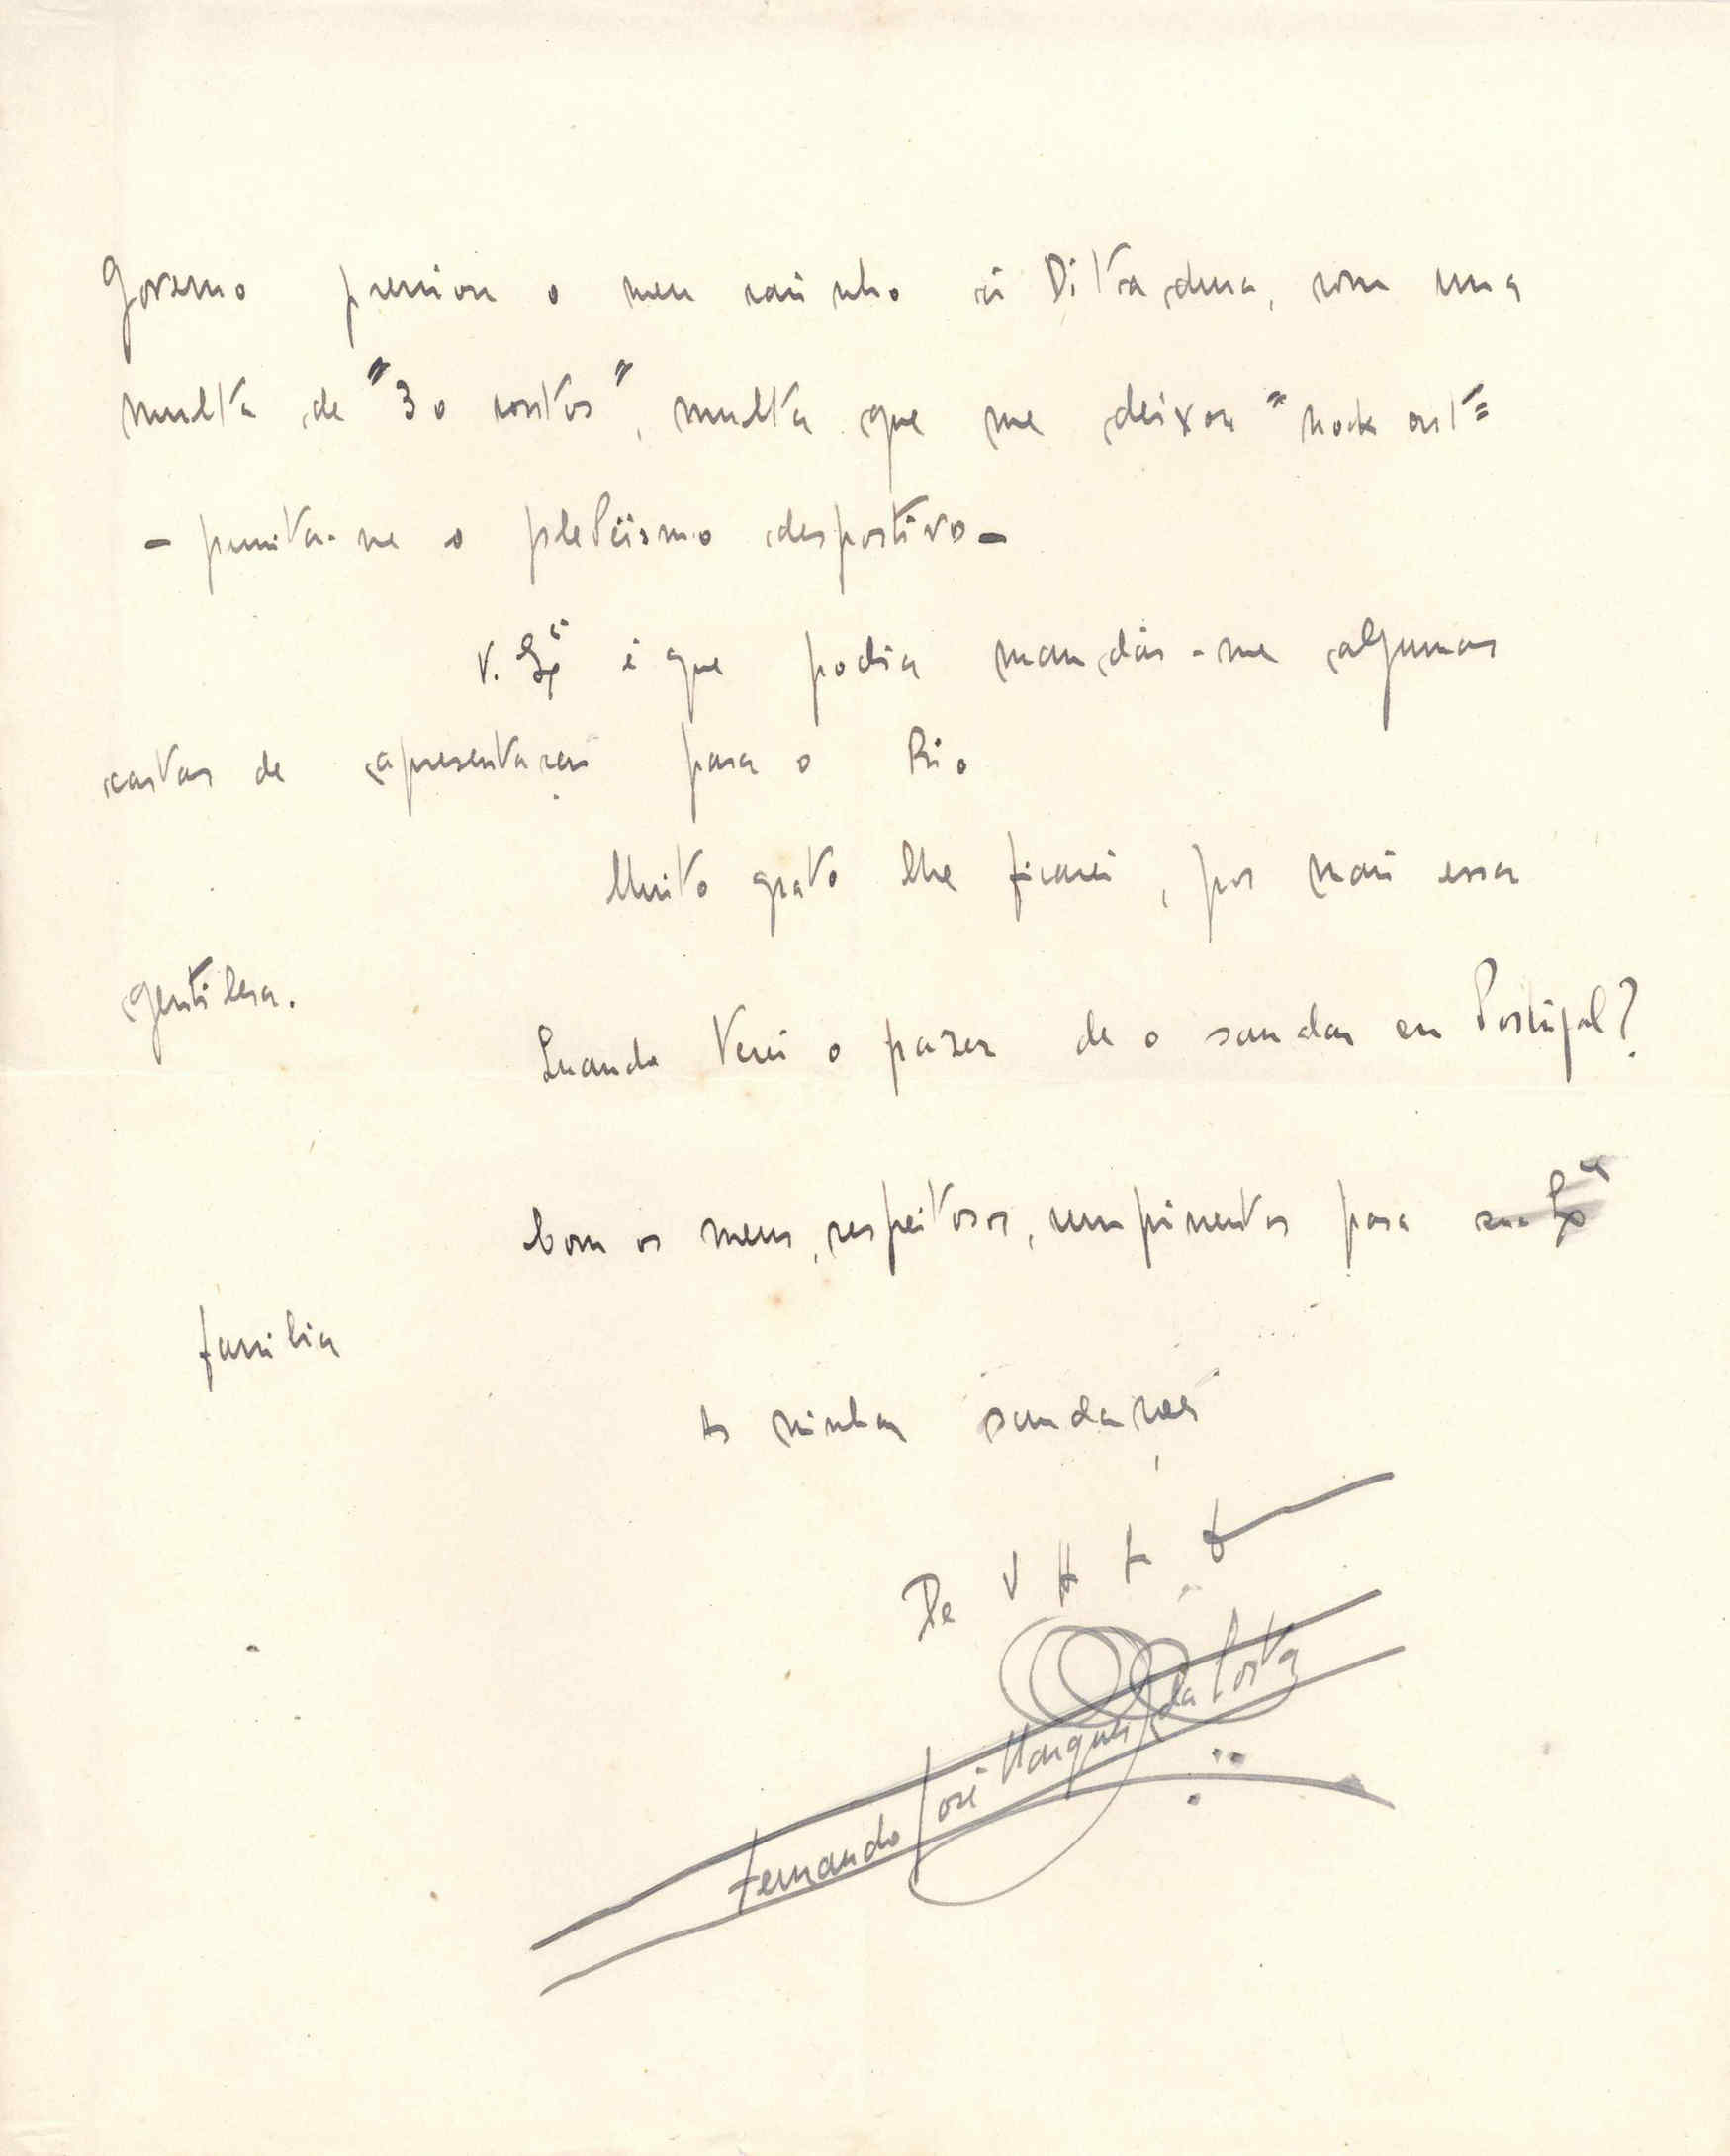 Governo premiou o meu carinho á Ditadura, com uma
multa de "30 contos", multa que me deixou "nock out"
- permita-me o plebeismo desportivo -
V. Exª é que podia mandar-me algumas
cartas de apresentação para o Rio
Muito grato lhe ficarei, por mais essa
gentilesa.
Quando terei o prazer de o saudar em Portugal?
Com os meus, respeitosos, cumprimentos para sua Exª
familia
As minhas saudações
De V
Fernando José Marques da Costa